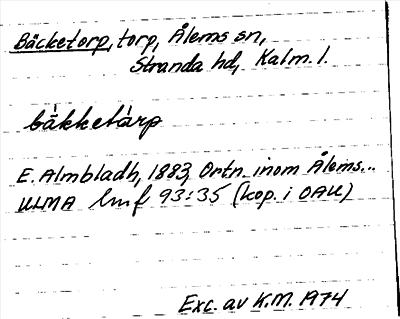 Bäcketorp, torp, Ålems sn,
Stranda hd, Kalm. l.
bäkketårp
E. Almbladh, 1883, Ortn. inom Ålems...
ULMA hmf 93:35 (kop. i OAU)
Exc. av K.M. 1974